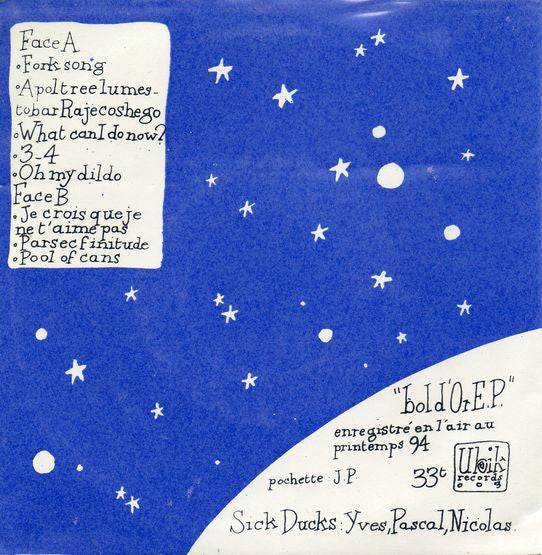 Face A
• Fork song
• Apoltreelumes-
tobar Rajecoshego
• What can I do now?
• 3-4
• Oh my dildo
Face B
• Je crois que je
ne t'aime pas
• Parsec finitude
• Pool of cans
"bol d'Or E.P."
enregistré en l'air au
printemps 94
pochette : J.P.
33t
Ubik
records
005
Sick Ducks: Yves, Pascal, Nicolas.